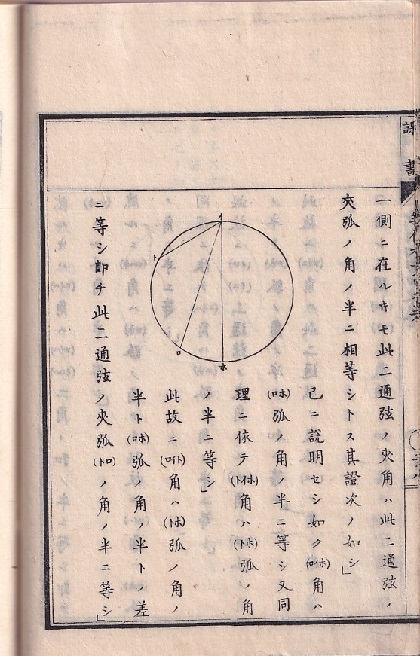 一側ニ在ルキモ此二通弦ノ夾角ハ此二通弦ノ
夾弧ノ角ノ半ニ相等シトス其證次ノ如シ」
已ニ說明セシ如ク 角ハ
弧ノ角ノ半ニ等シ又同
理ニ依テ 角ハ 弧ノ角
ノ半ニ等シ」
此故ニ 角ハ 弧ノ角ノ
半ト 弧ノ角ノ半トノ差
ニ等シ卽チ此二通弦ノ夾弧 ノ角ノ半ニ等シ」